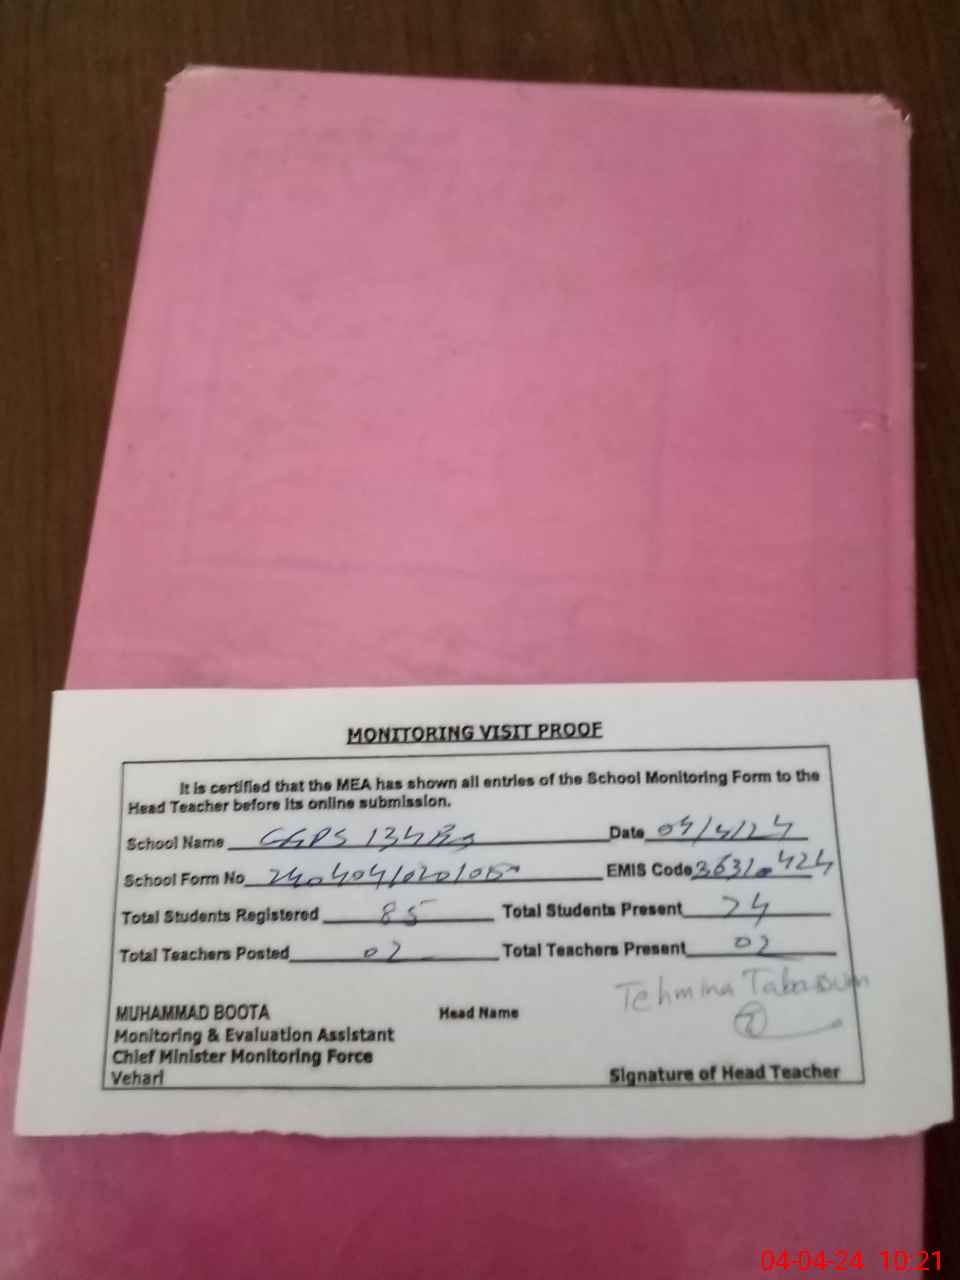 MONITORING VISIT PROOF
It is certified that the MEA has shown all entries of the School Monitoring Form to the
Head Teacher before its online submission.
School Name Date 04/4/24
School Form No EMIS Code
Total Students Registered 85 Total Students Present 74
Total Teachers Posted 02 Total Teachers Present 02
Tehmina Tabassum
MUHAMMAD BOOTA Head Name
Monitoring & Evaluation Assistant
Chief Minister Monitoring Force
Vehari Signature of Head Teacher
04-04-24 10:21